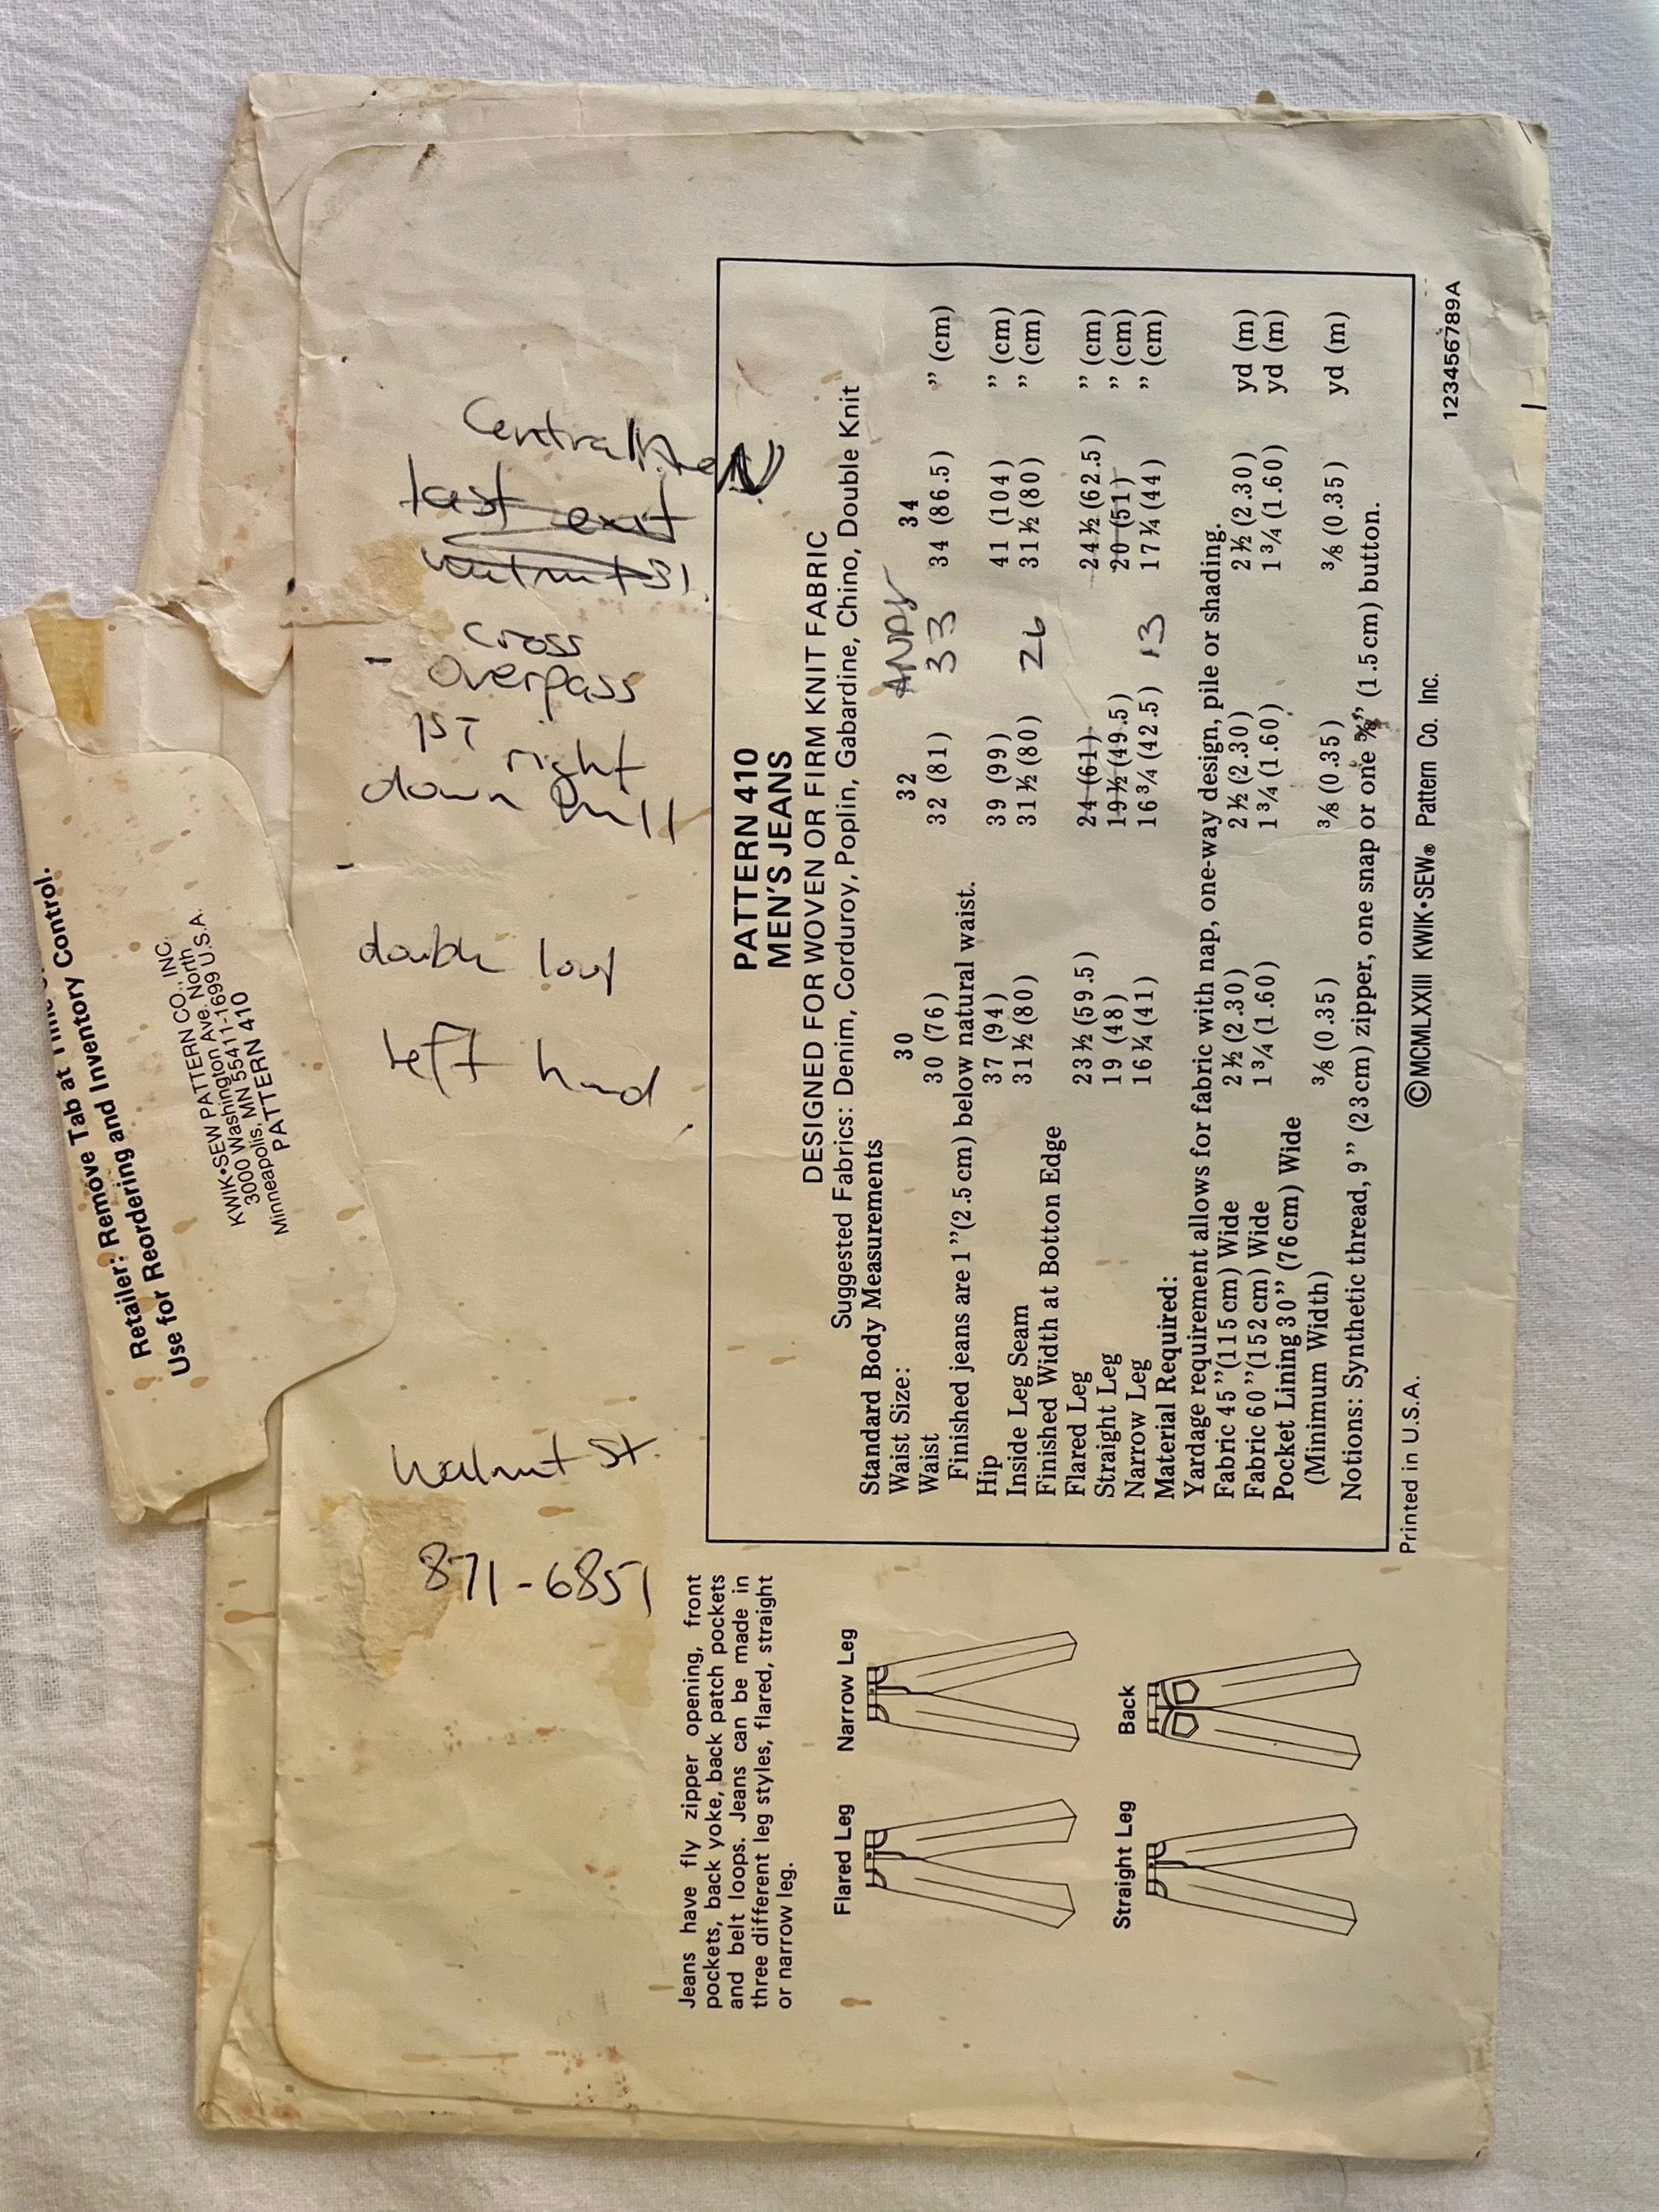 Retailer: Remove Tab at Time
Use for Reordering and Inventory Control.
KWIK•SEW PATTERN CO., INC.
3000 Washington Ave. North
Minneapolis, MN 55411-1699 U.S.A.
PATTERN 410
Central
last exit
walnut St.
cross
overpass
1ST right
down hill
double
left hand
Walnut St.
871-6851
Jeans have fly zipper opening, front
pockets, back yoke, back patch pockets
and belt loops. Jeans can be made in
three different leg styles, flared, straight
or narrow leg.
Flared Leg
Narrow Leg
Straight Leg
Back
PATTERN 410
MEN'S JEANS
DESIGNED FOR WOVEN OR FIRM KNIT FABRIC
Suggested Fabrics: Denim, Corduroy, Poplin, Gabardine, Chino, Double Knit
Standard Body Measurements
Waist Size: 30 32 34
Waist 30 (76) 32 (81) 33 34 (86.5) ” (cm)
Finished jeans are 1”(2.5 cm) below natural waist.
Hip 37 (94) 39 (99) 41 (104) ” (cm)
Inside Leg Seam 31½ (80) 31½ (80) 26 31½ (80) ” (cm)
Finished Width at Botton Edge
Flared Leg 23½ (59.5) 24 (61) 24½ (62.5) ” (cm)
Straight Leg 19 (48) 19½ (49.5) 20 (51) ” (cm)
Narrow Leg 16¼ (41) 16¾ (42.5) 13 17¼ (44) ” (cm)
Material Required:
Yardage requirement allows for fabric with nap, one-way design, pile or shading.
Fabric 45”(115 cm) Wide 2½ (2.30) 2½ (2.30) 2½ (2.30) yd (m)
Fabric 60”(152 cm) Wide 1¾ (1.60) 1¾ (1.60) 1¾ (1.60) yd (m)
Pocket Lining 30” (76cm) Wide
(Minimum Width) ⅜ (0.35) ⅜ (0.35) ⅜ (0.35) yd (m)
Notions: Synthetic thread, 9” (23cm) zipper, one snap or one ⅝” (1.5cm) button.
Printed in U.S.A.
©MCMLXXIII KWIK•SEW® Pattern Co. Inc.
123456789A